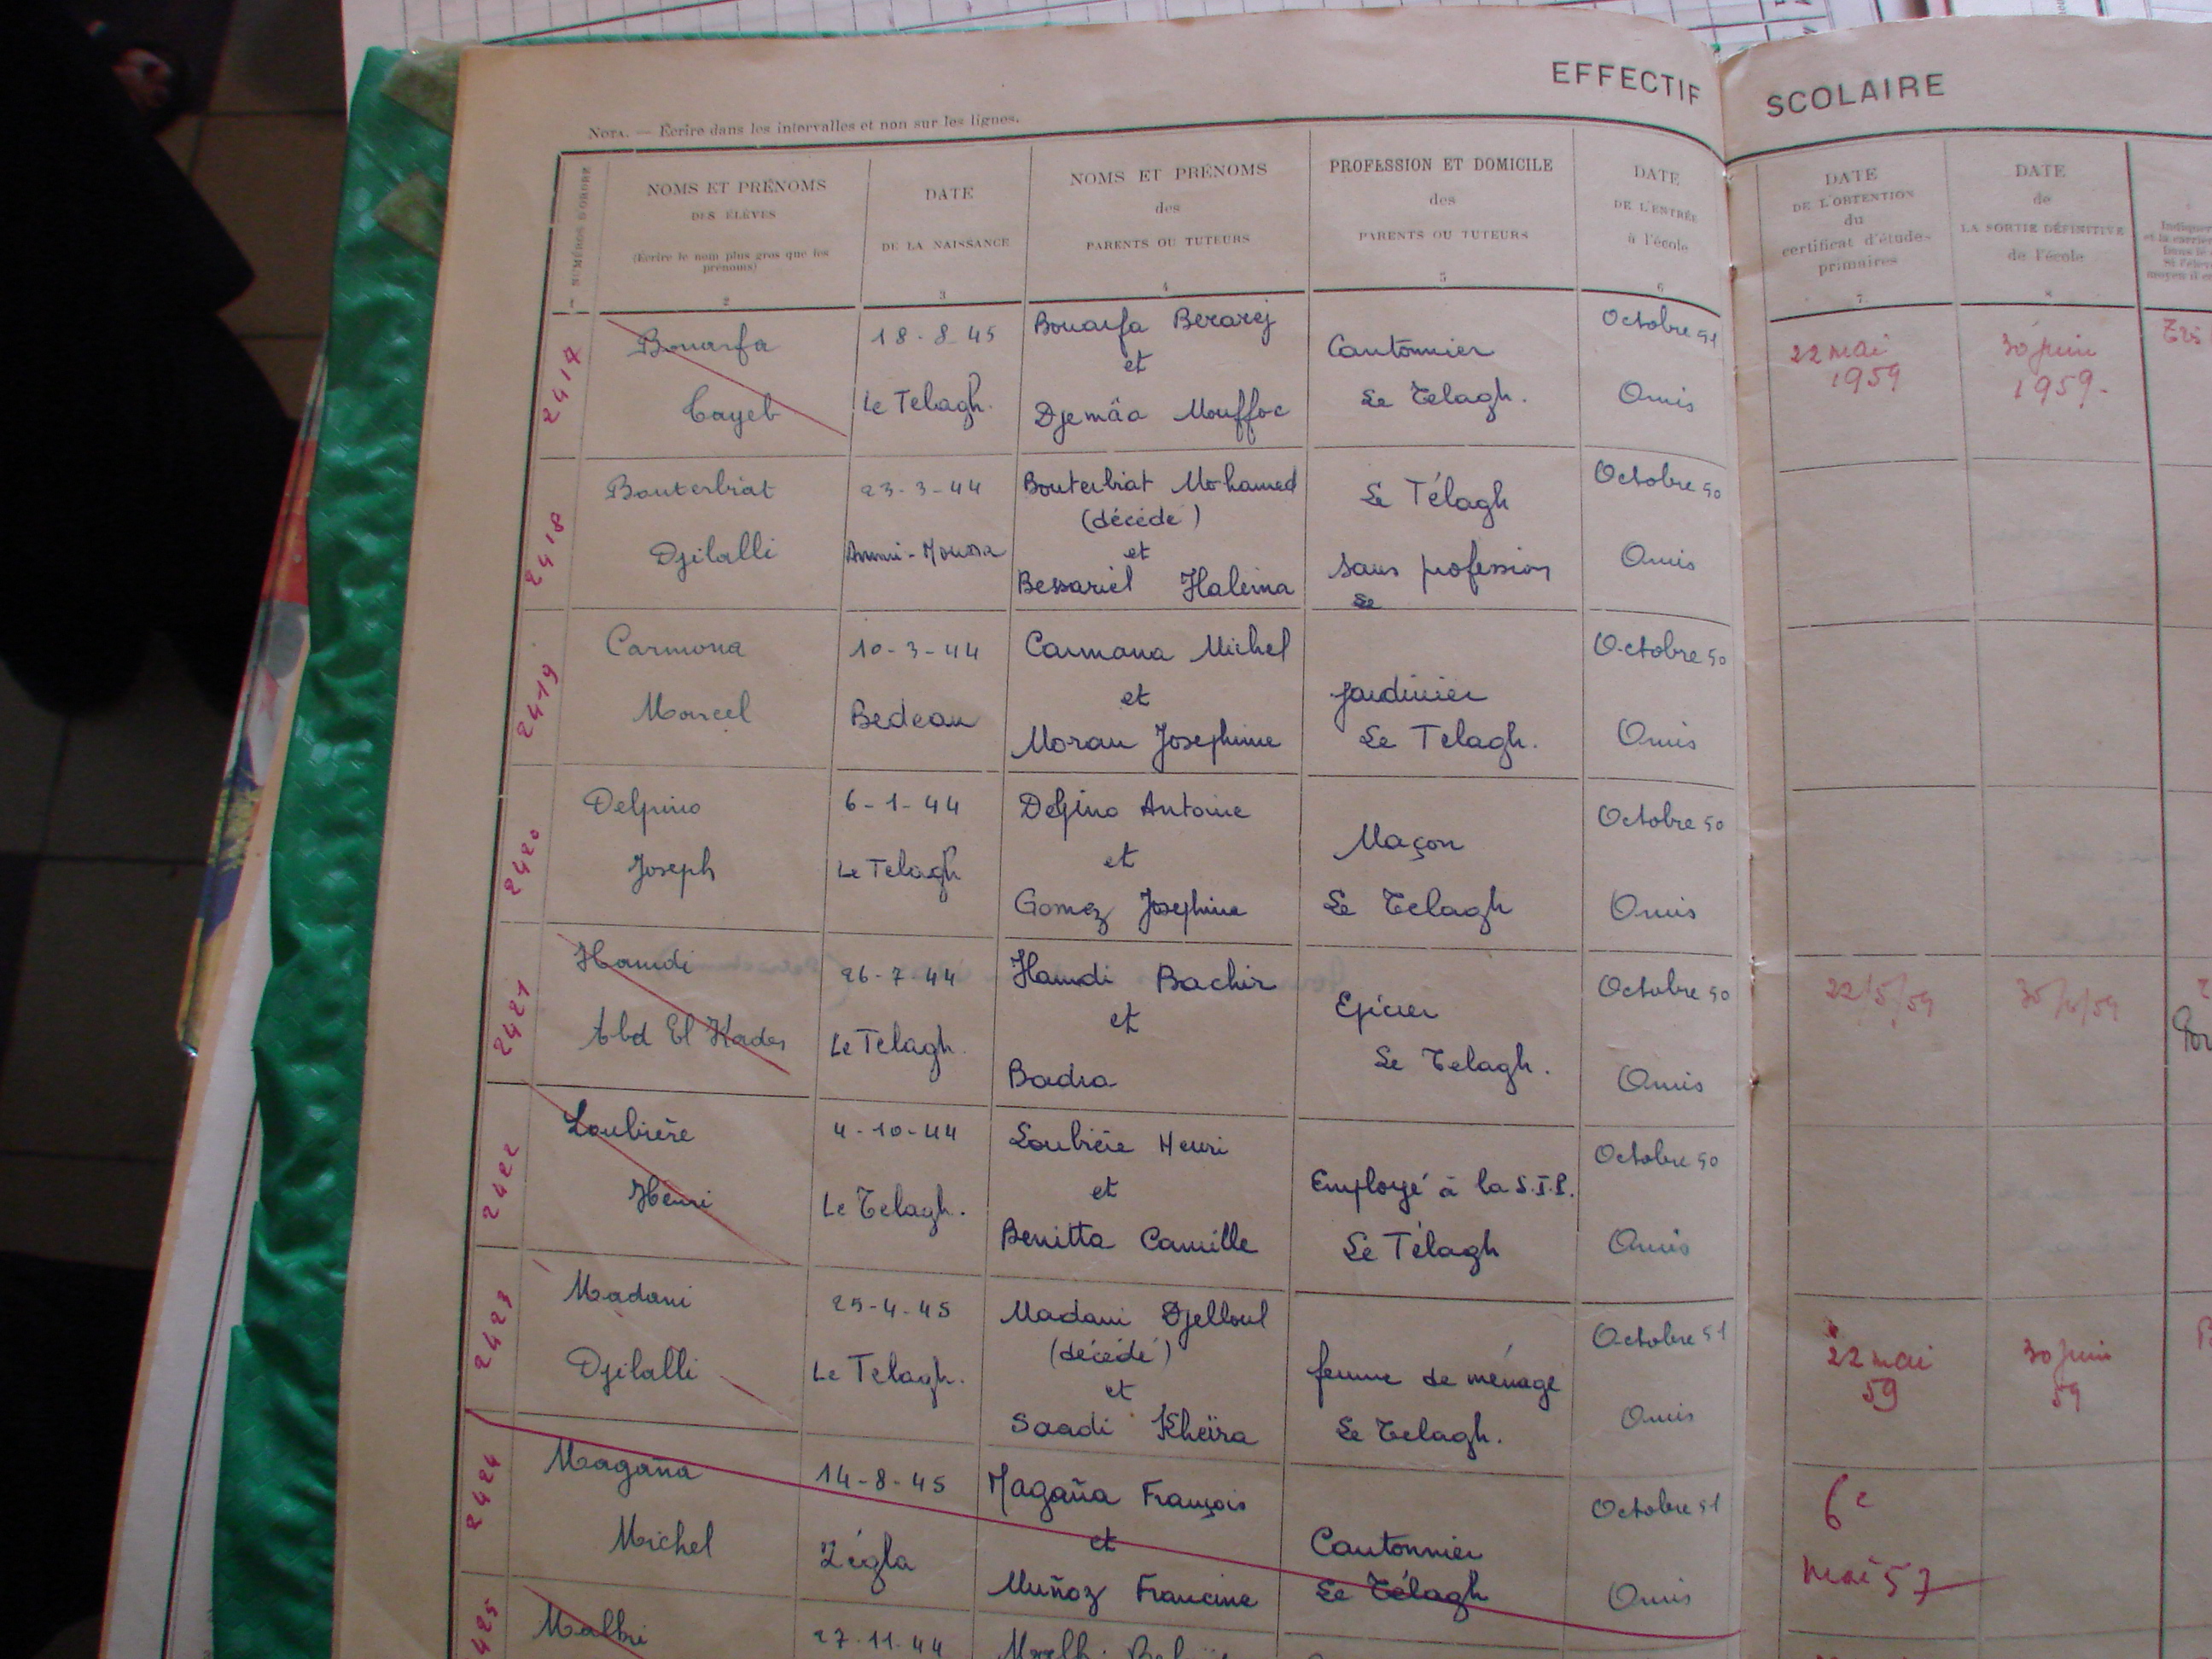 EFFECTIF SCOLAIRE
NOTA. — Ecrire dans les intervalles et non sur les lignes.
NUMÉROS D'ORDRE
1
NOMS ET PRÉNOMS
DES ÉLÈVES
(Ecrire le nom plus gros que les
prénoms)
2
DATE
DE LA NAISSANCE
3
NOMS ET PRÉNOMS
des
PARENTS OU TUTEURS
4
PROFESSION ET DOMICILE
des
PARENTS OU TUTEURS
5
DATE
DE L'ENTRÉE
à l'école
6
DATE
DE L'OBTENTION
du
certificat d'études
primaires
7
DATE
de
LA SORTIE DÉFINITIVE
de l'école
8
2417
Bouarfa
Tayeb
18-8-45
Le Telagh.
Bouarfa Berarej
et
Djemâa Mouffoc
Cantonnier
Le Telagh.
Octobre 51
Omis
22 mai
1959
30 juin
1959-
2418
Bouterbiat
Djilalli
23-3-44
Ammi-Moussa
Bouterbiat Mohamed
(décédé)
et
Bessariel Haleima
Le Télagh
sans profession
Le
Octobre 50
Omis
2419
Carmona
Marcel
10-3-44
Bedeau
Carmona Michel
et
Moran Josephine
jardinier
Le Telagh.
Octobre 50
Omis
2420
Delpino
Joseph
6-1-44
Le Telagh
Delpino Antoine
et
Gomez Josephine
Maçon
Le Telagh
Octobre 50
Omis
2421
Hamdi
Abd El Kader
26-7-44
Le Telagh.
Hamdi Bachir
et
Badra
Epicier
Le Telagh.
Octobre 50
Omis
22/5/59
30/6/59
2422
Loubière
Henri
4-10-44
Le Telagh.
Loubière Henri
et
Benitta Camille
Employé à la S.I.P.
Le Télagh
Octobre 50
Omis
2423
Madani
Djilalli
25-4-45
Le Telagh.
Madani Djelloul
(décédé)
et
Saadi Kheïra
femme de ménage
Le Telagh.
Octobre 51
Omis
22 mai
59
30 juin
59
2424
Magaña
Michel
14-8-45
Zégla
Magaña François
et
Muñoz Francine
Cantonnier
Le Télagh
Octobre 51
Omis
6e
mai 57
425
27-11-44